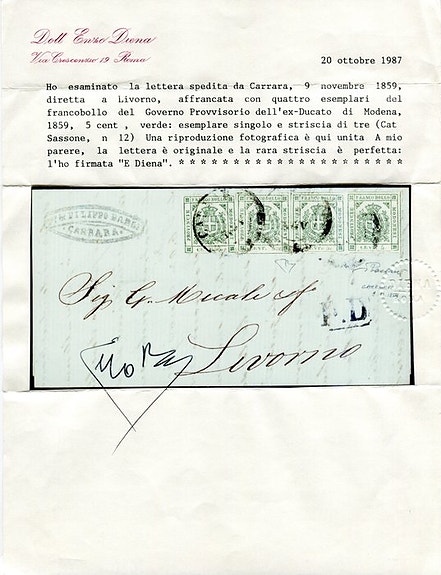 Dott. Enzo Diena
Via Crescenzio 19 Roma
20 ottobre 1987
Ho esaminato la lettera spedita da Carrara, 9 novembre 1859,
diretta a Livorno, affrancata con quattro esemplari del
francobollo del Governo Provvisorio dell'ex-Ducato di Modena,
1859, 5 cent , verde: esemplare singolo e striscia di tre (Cat
Sassone, n 12) Una riproduzione fotografica è qui unita A mio
parere, la lettera è originale e la rara striscia è perfetta:
l'ho firmata "E Diena". * * * * * * * * * * * * * * * * * * * *
CARRARA
FRANCO BOLLO
FRANCO BOLLO
FRANCO BOLLO
FRANCO BOLLO
P.D
Livorno